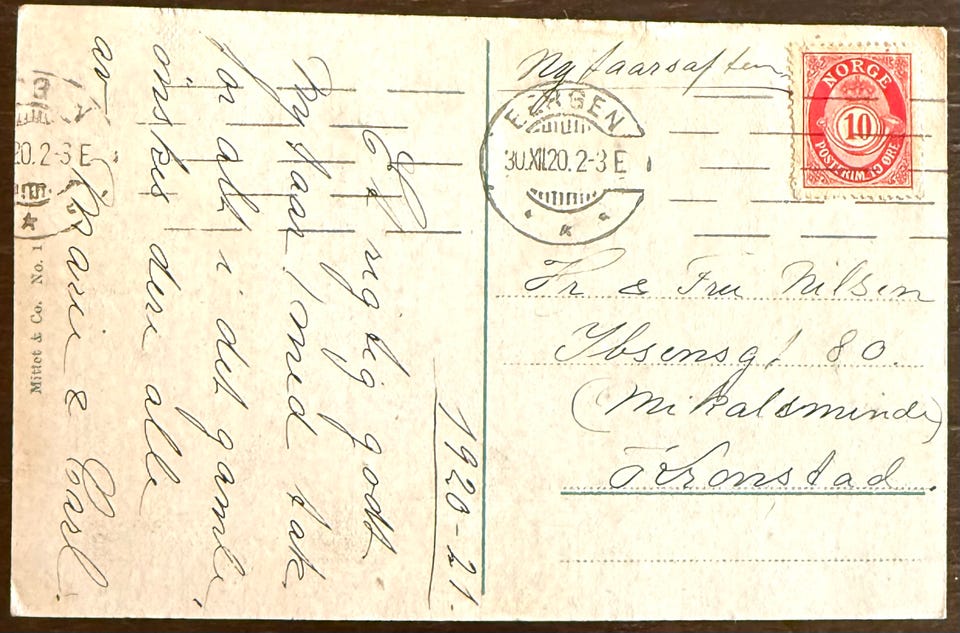 1920-21.
Et rigtig godt
Nytaar! med tak
for alt i det gamle,
önskes dere alle
av Marie & Carl.
Mittet & Co. No. 1
3
20.2-3 E
Nytaarsaften
BERGEN
30.XII.20.2-3 E
NORGE
10
POSTFRIM. 10 ØRE
Hr & Fru Nilsen
Ibsensgt 80.
(Mikalsminde)
Kronstad.